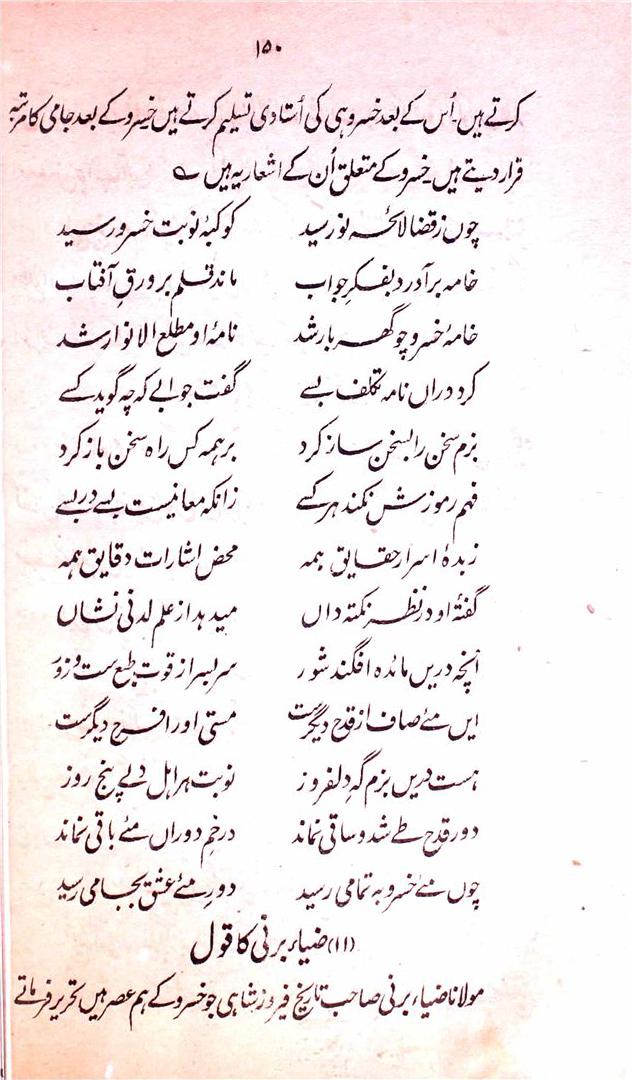 ۱۵۰
کرتے ہیں۔ اُس کے بعد خسرو ہی کی اُستادی تسلیم کرتے ہیں خسرو کے بعد جامی کا مرتبہ
قرار دیتے ہیں۔ خسرو کے متعلق اُن کے اشعار یہ ہیں ؎
چوں ز قضا لائحہ نو رسید کوکبۂ نوبت خسرو رسید
خامہ برآورد بفکرِ جواب ماند قلم بر ورقِ آفتاب
خامۂ خسرو چو گہر بار شد نامۂ او مطلع الانوار شد
کرد دراں نامہ تکلف بسے گفت جوابے کہ چہ گوید کسے
بزم سخن را بسخن ساز کرد بر ہمہ کس راہ سخن باز کرد
فہم رموزش نکند ہر کسے زانکہ معانیست بسے در بسے
زبدۂ اسرار حقایق ہمہ محض اشارات دقایق ہمہ
گفتۂ او در نظر نکتہ داں میدہد از علم لدنی نشاں
آنچہ دریں مائدہ افگند شور سر بسر از قوت طبع ست و زور
ایں مئے صاف از قدح دیگرست مستی او را فرح دیگرست
ہست دریں بزم گہِ دلفروز نوبت ہر اہل دلے پنج روز
دور قدح طے شد و ساقی نماند در خمِ دوراں مئے باقی نماند
چوں مئے خسرو بہ تمامی رسید دورِ مئے عشق بجامی رسید
(۱۱) ضیاء برنی کا قول
مولانا ضیاء برنی صاحب تاریخ فیروز شاہی جو خسرو کے ہم عصر ہیں تحریر فرماتے